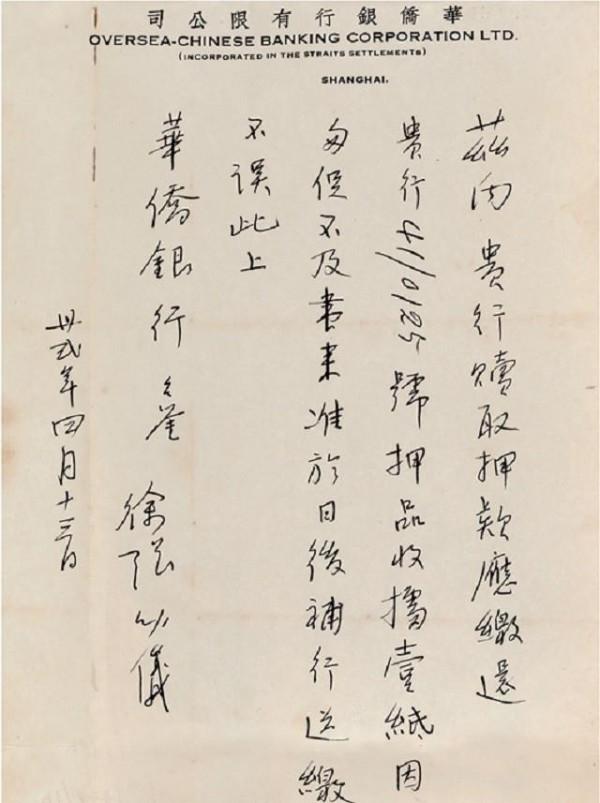 華僑銀行有限公司
OVERSEA-CHINESE BANKING CORPORATION LTD.
(INCORPORATED IN THE STRAITS SETTLEMENTS)
SHANGHAI.
茲向貴行贖取押款應繳還
貴行41/0/25號押品收據壹紙因
匆促不及書来准於日後補行送繳
不誤此上
華僑銀行台鑒
徐張儀
卅弍年四月十三日